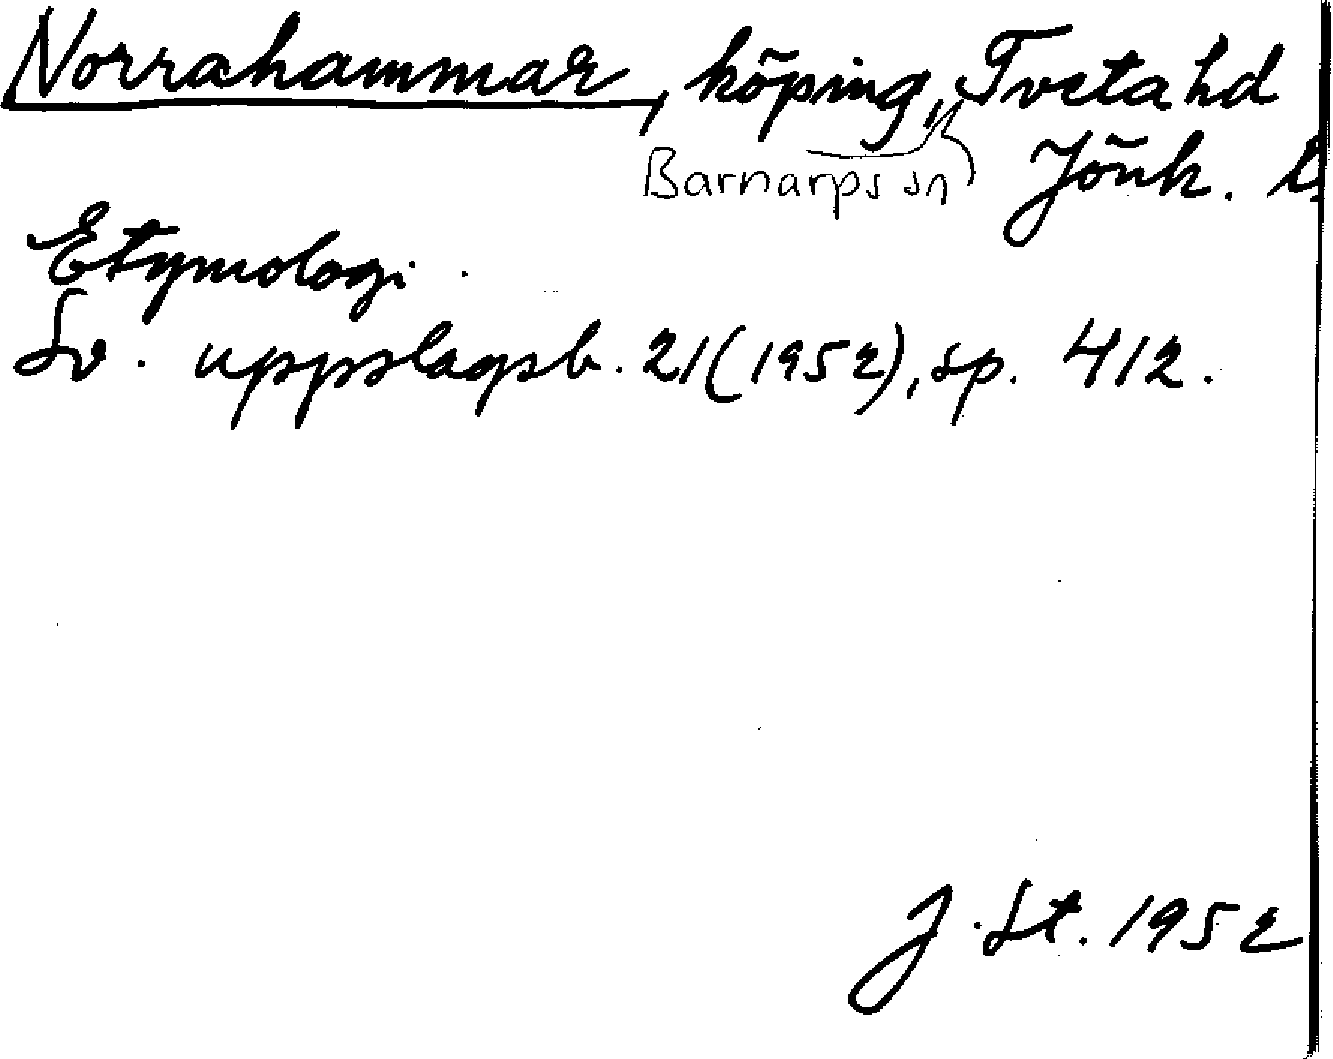 Norrahammar, köping, Tveta hd
Barnarps sn
Jönk. l.
Etymologi.
Sv. uppslagsb. 21 (1952), sp. 412.
J. St. 1952